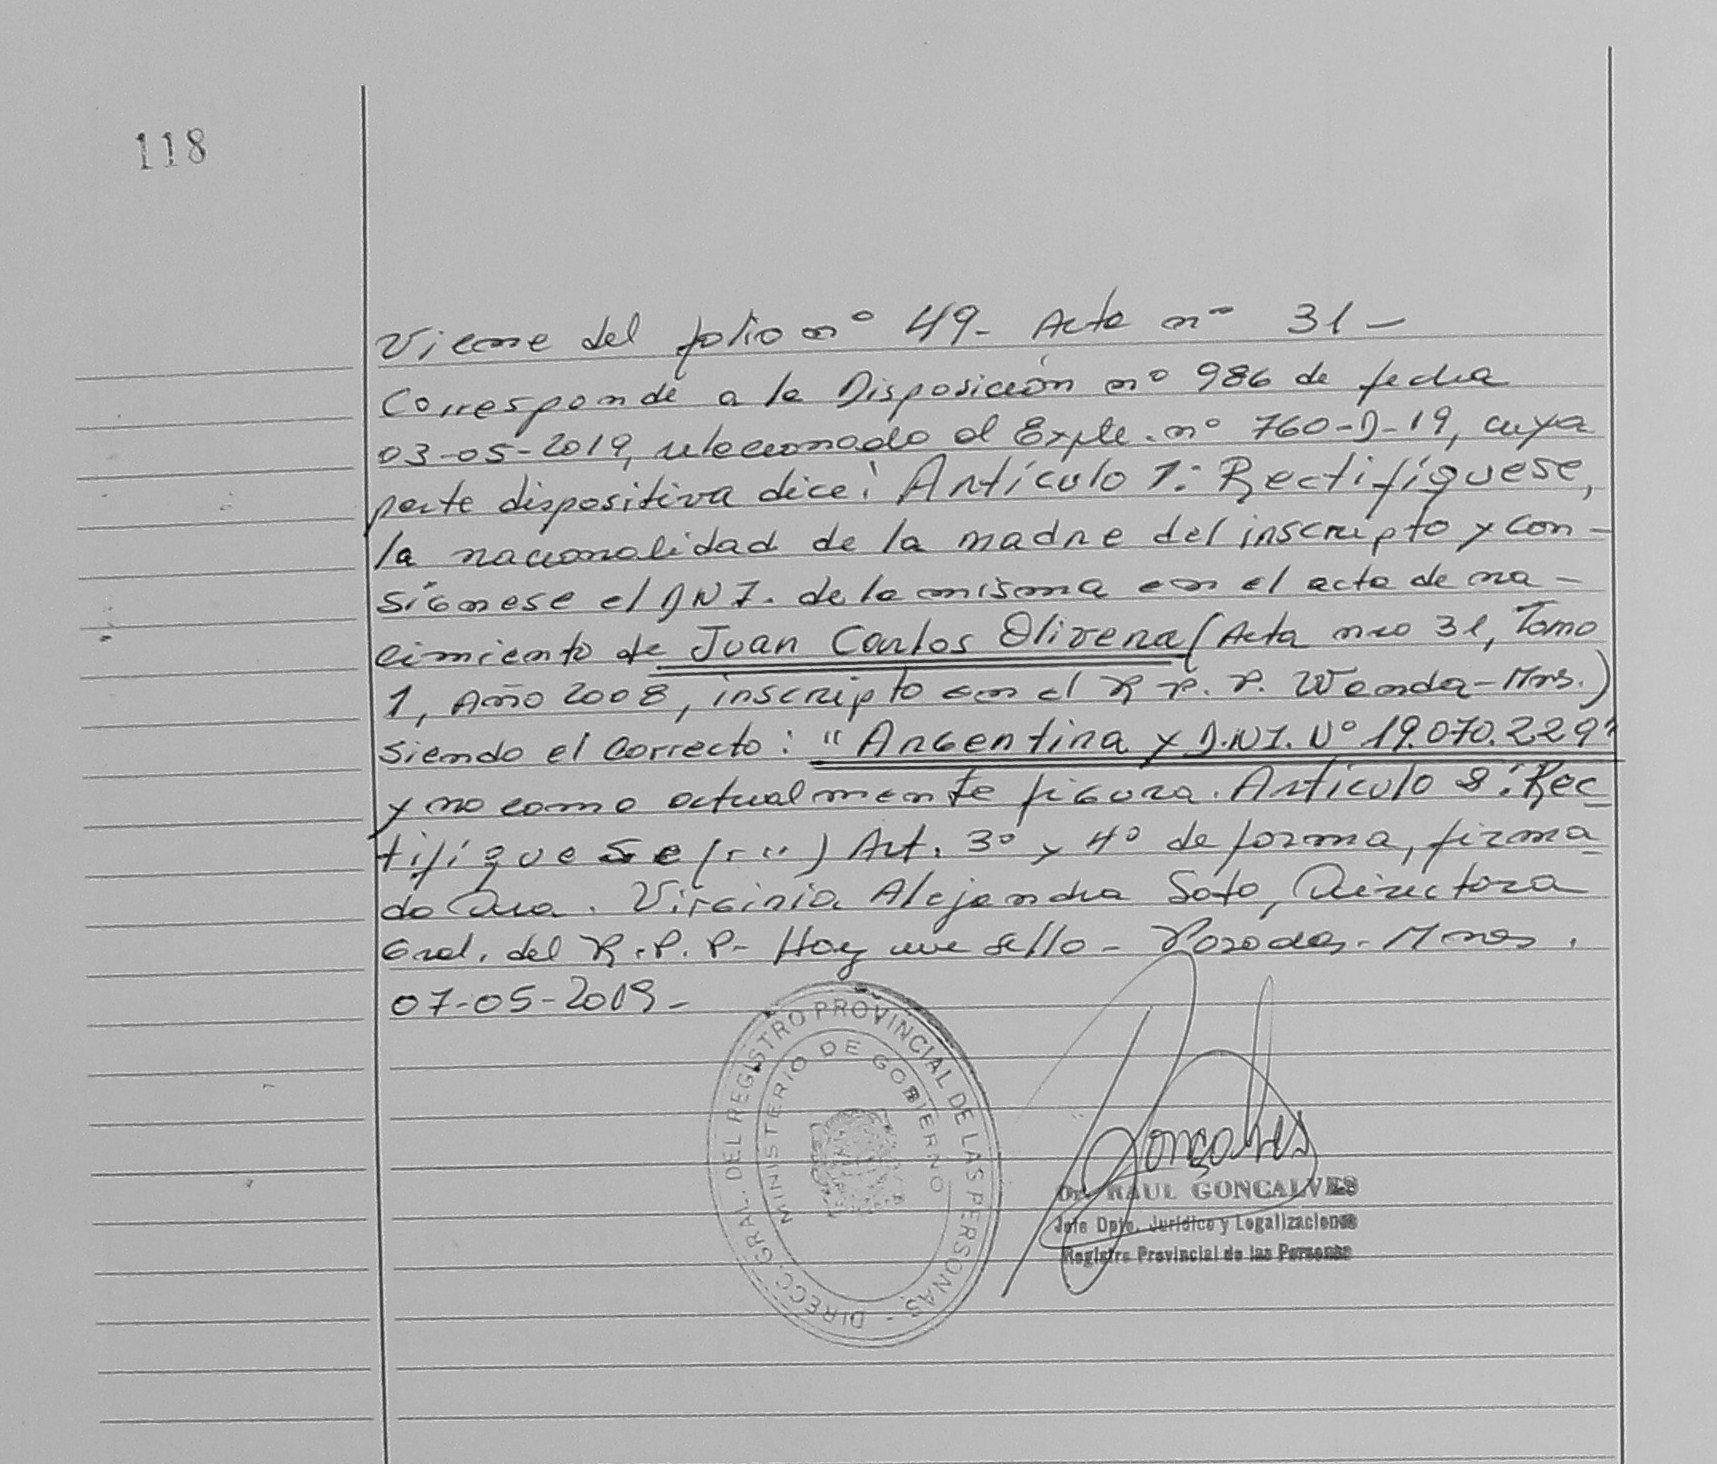 118
Viene del folio nº 49- Acta nº 31-
Corresponde a la Disposición nº 986 de fecha
03-05-2019, relacionado al Expte. nº 760-D-19, cuya
parte dispositiva dice: Artículo 1: Rectifíquese,
la nacionalidad de la madre del inscripto y con-
signese el DNI. de la misma en el acta de na-
cimiento de Juan Carlos Olivera (Acta nro 31, Tomo
1, Año 2008, inscripto en el R.P.P. Wanda-Mns.)
siendo el correcto: "Argentina y D.N.I. Nº 19.070.229"
y no como actualmente figura. Artículo 2: Rec-
tifíquese (...) Art. 3º y 4º de forma, firma-
do Dra. Virginia Alejandra Soto, Directora
Gral. del R.P.P- Hay un sello- Posadas- Mnes.
07-05-2019-
DIRECC. GRAL. DEL REGISTRO PROVINCIAL DE LAS PERSONAS -
MINISTERIO DE GOBIERNO
Goncalves
Dr. RAUL GONCALVES
Jefe Dpto. Jurídico y Legalizaciones
Registro Provincial de las Personas